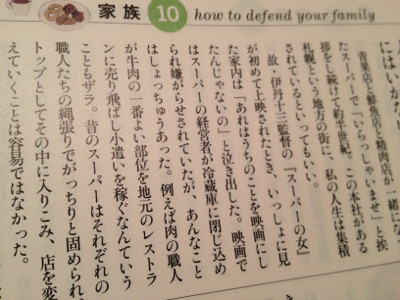 家族 10 how to defend your family
にはいかな
青果店と鮮魚店と精肉店が一緒にな
たスーパーで「いらっしゃいませ」と挨
拶をし続けて約半世紀。この本社がある
札幌という地方の街に、私の人生は集積
されているといってもいい。
故・伊丹十三監督の『スーパーの女』
が初めて上映されたとき、いっしょに見
た家内は「あれはうちのことを映画にし
たんじゃないの」と泣き出した。映画で
はスーパーの経営者が冷蔵庫に閉じ込め
られ嫌がらせされていたが、あんなこと
はしょっちゅうあった。例えば肉の職人
が牛肉の一番よい部位を地元のレストラ
ンに売り飛ばし小遣いを稼ぐなんていう
こともザラ。昔のスーパーはそれぞれの
職人たちの縄張りでがっちりと固められ、
トップとしてその中に入りこみ、店を変
えていくことは容易ではなかった。